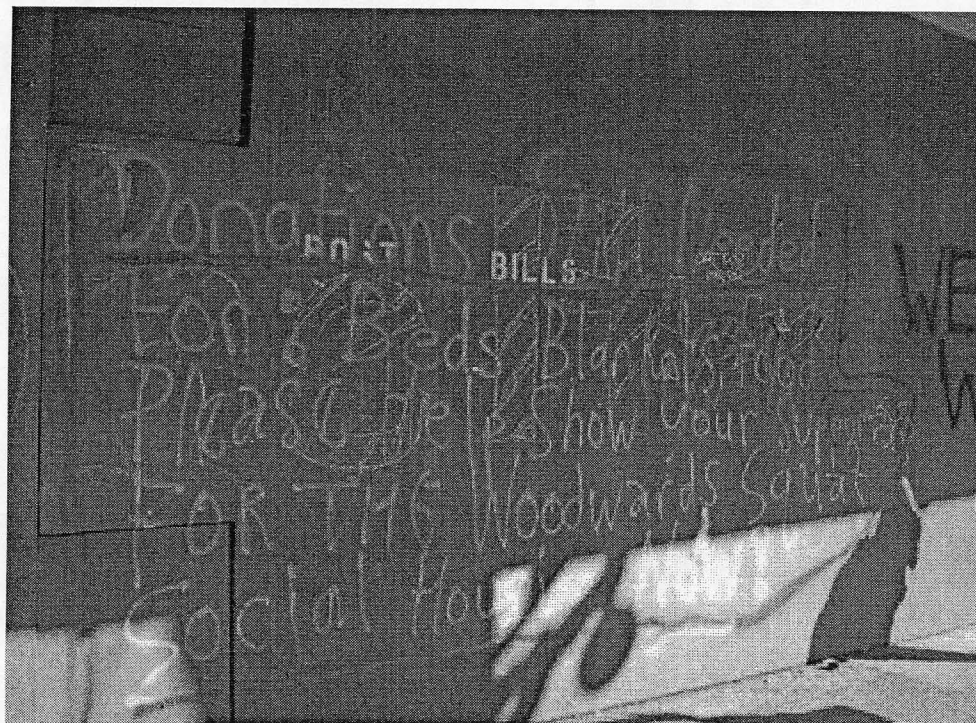 Donations Needed
POST BILLS
For Beds Blankets Food
Please help Show Your Support
FOR THE Woodwards Squat
Social Housing
WE